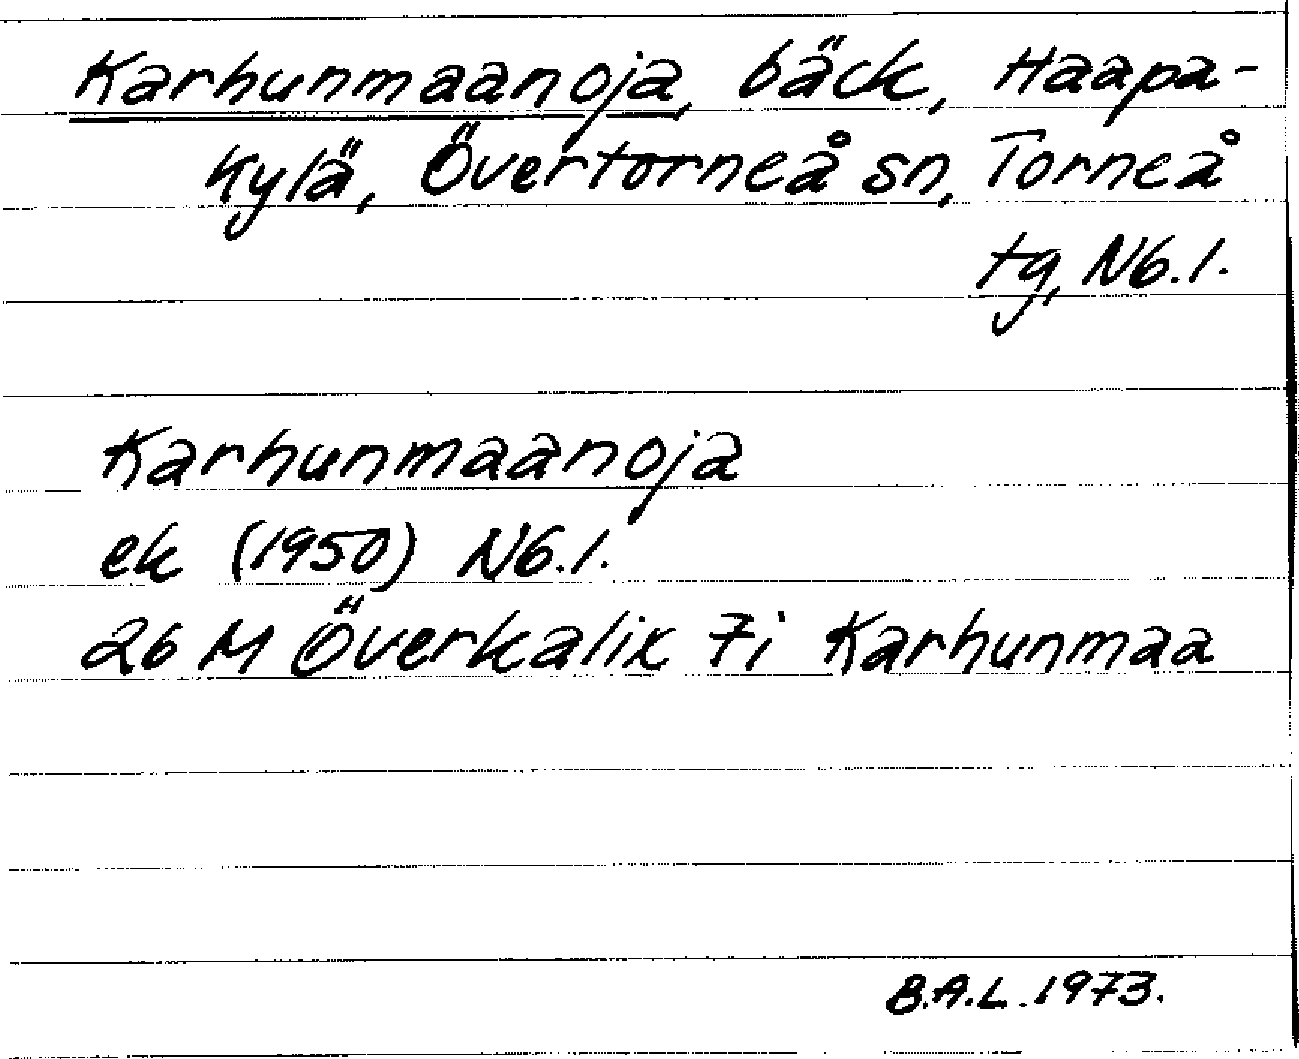 Karhunmaanoja, bäck, Haapa-
kylä, Övertorneå sn, Torneå
tg, N6.1.
Karhunmaanoja
ek (1950) N6.1.
26 M Överkalix 7i Karhunmaa
B.A.L. 1973.